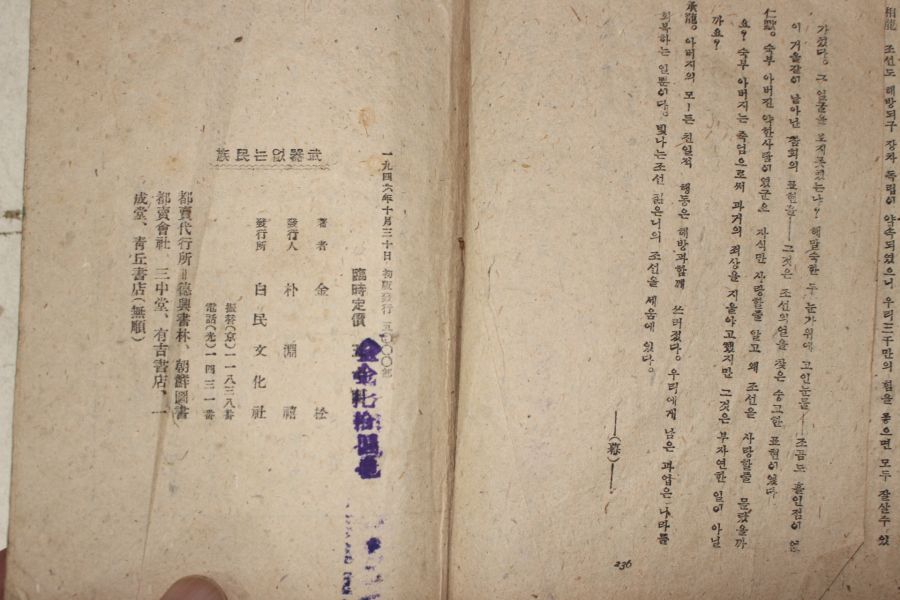 相龍 조선도 해방되구 장차 독립이 약속되였으니 우리三千만의 힘을 뫃으면 모두 잘살수 있
가섰다。그 얼굴을 보지못했는냐? 해말숙한 두 눈가위에 고인눈물——조곰도 흘린점이 없
이 거울같이 맑아진 참회의 표현을——그것은 조선의얼을 찾은 숭고한 표현이였다
仁默。숙부 아버진 약한사람이였군요 자식만 사랑할줄 알고 왜 조선을 사랑할줄 몰랐을까
요? 숙부 아버지는 죽엄으로써 과거의 죄상을 지울야고했지만 그것은 부자연한 일이 아닐
까요?
承龍。아버지의 모ー든 친일적 행동은 해방과함께 쓰러젔다。우리에게 남은 과업은 나라를
회복하는 일뿐이다。빛나는조선 젊은이의 조선을 세움에 있다。
——(幕)——
236
一九四六年十月三十日 初版發行 五〇〇〇部
臨時定價
金七拾圓
著者 金松
發行人 朴淵禧
發行所 白民文化社
振替(京)一一八三八番
電話(光)一四三一番
武器없는民族
都賣代行所=德興書林、朝鮮圖書
都賣會社、三中堂、有吉書店、一
成堂、靑丘書店(無順)